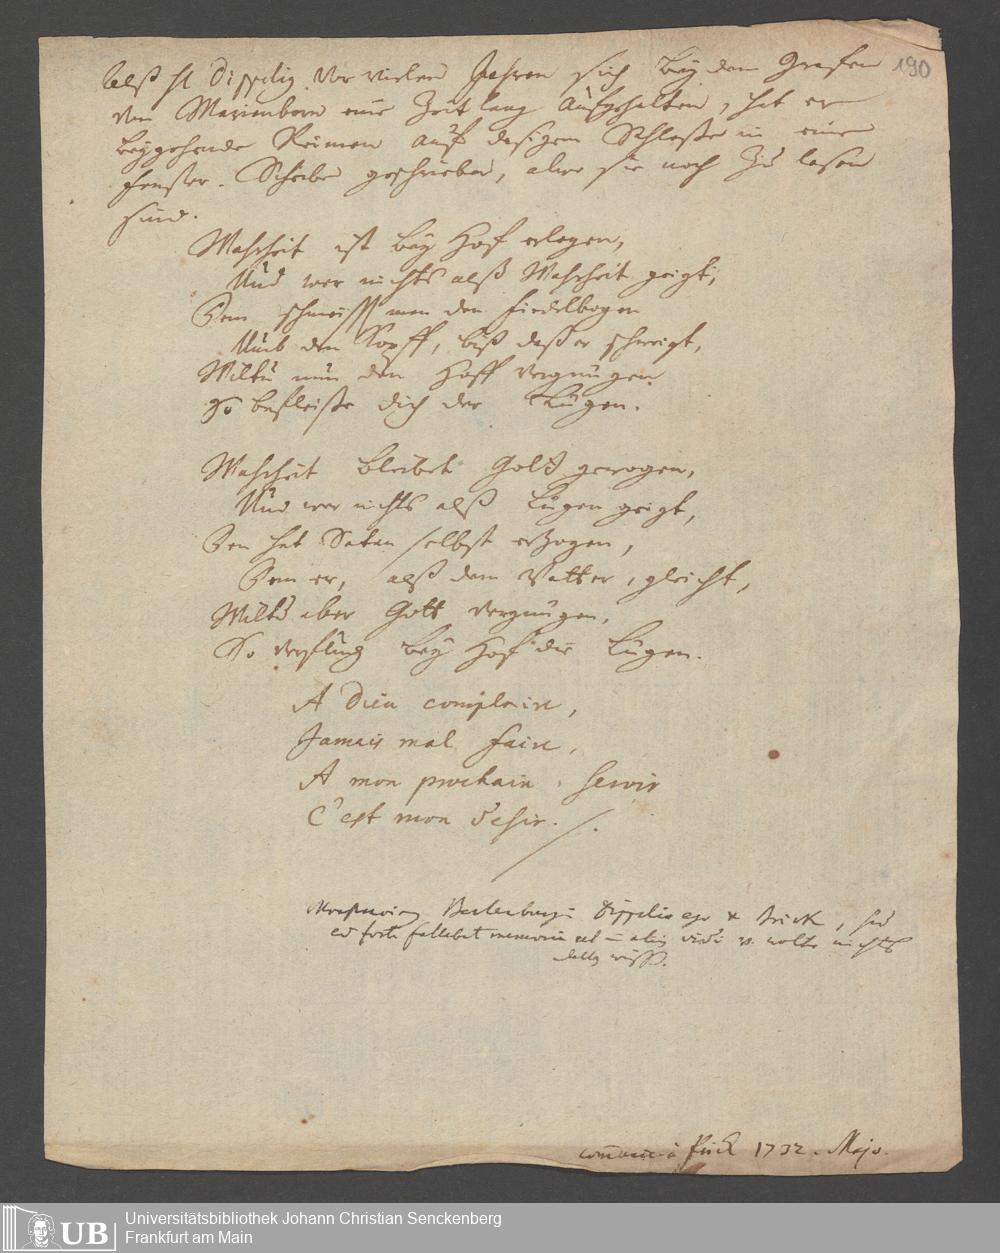 190
Alß H. Dippelig vor vielen Jahren sich bey dem Grafen
von Marienborn eine Zeit lang aufgehalten, hat er
beygehende Reimen auf dasigem Schlosse in eine
Fenster-Scheibe geschrieben, alwo sie noch zu lesen
sind.
Wahrheit ist bey Hoff erlogen,
Und wer nichts alß Wahrheit geigt,
Dem schmeisst man den Fiedelbogen
Umb den Kopff, biß daß er schweigt,
Wiltu nun den Hoff vergnügen
So befleisse dich der Lügen.
Wahrheit bleibet Gold gewogen,
Und wer nichts alß Lügen geigt,
Den hat Satan selbst erzogen,
Dem er, alß dem Vatter, gleicht,
Wiltu aber Gott vergnügen,
So verfluch bey Hof die Lügen.
A Dieu complaire,
Jamais mal faire,
A mon prochain servir
C'est mon desir. /.
Berleburgi Dippelio ego &
forte fallebat memoria vel alia wolte nichts
1732. Majo.
UB
Universitätsbibliothek Johann Christian Senckenberg
Frankfurt am Main